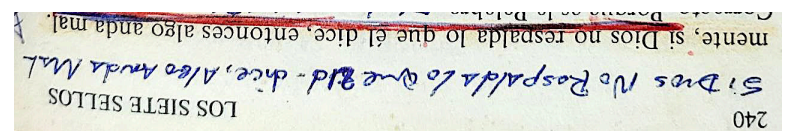 240 LOS SIETE SELLOS
Si Dios No Respalda lo Que Ud - dice, Algo Anda Mal
mente, si Dios no respalda lo que él dice, entonces algo anda mal.